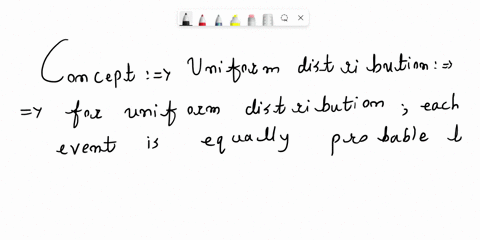 Concept :=> Uniform distribution :=>
=> for uniform distribution ; each
event is equally probable l